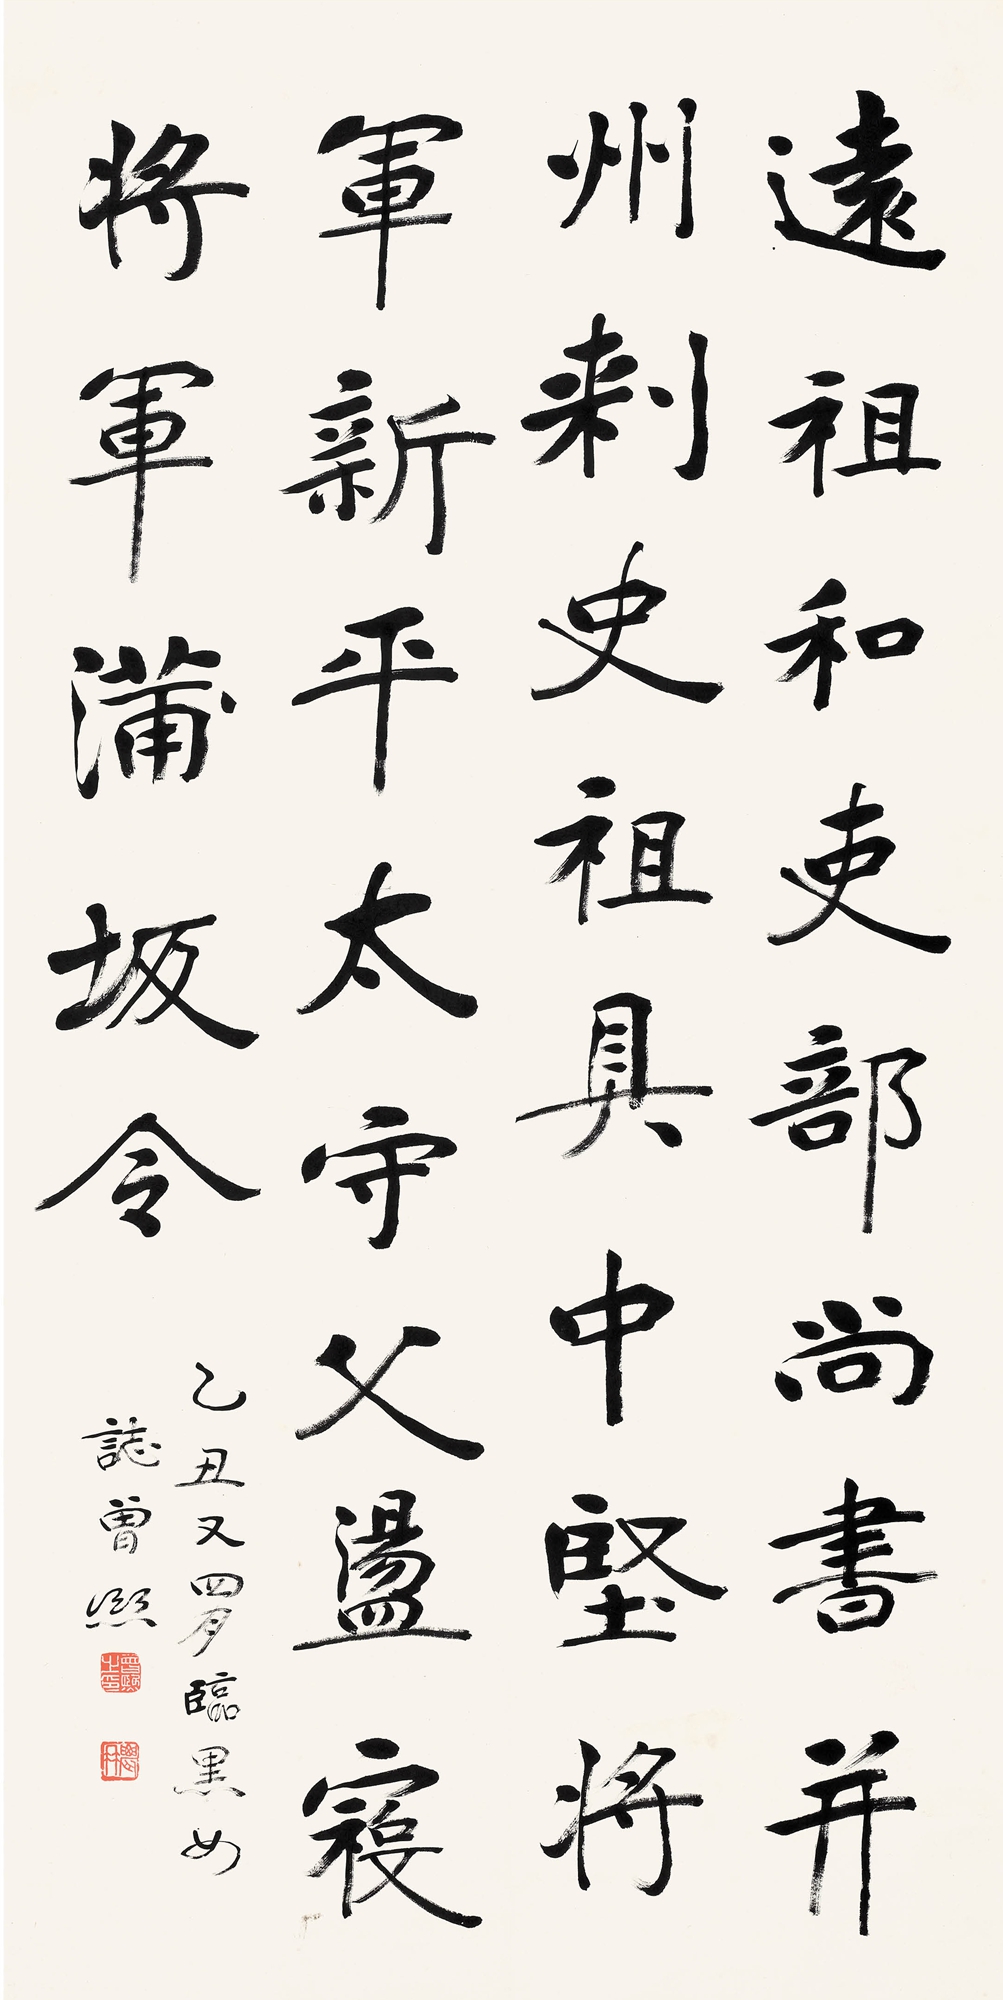 遠祖和吏部尚書并
州刺史祖具中堅將
軍新平太守父盪寇
將軍蒲坂令
乙丑又四月臨黑女
誌曾熙